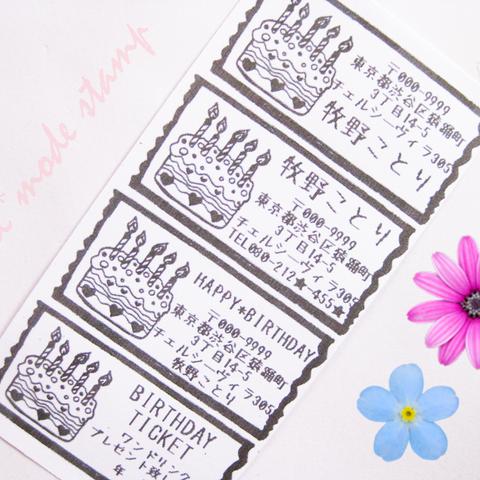 〒000-9999
東京都渋谷区鶯踊町
3丁目14-5
チェルシーヴィラ305
牧野ことり
牧野ことり
〒000-9999
東京都渋谷区鶯踊町
3丁目14-5
チェルシーヴィラ305
TEL090-212★-455★
HAPPY*BIRTHDAY
〒000-9999
東京都渋谷区鶯踊町
3丁目14-5
チェルシーヴィラ305
牧野ことり
BIRTHDAY
TICKET
ワンドリンク
プレゼント致し
年
mode stamp